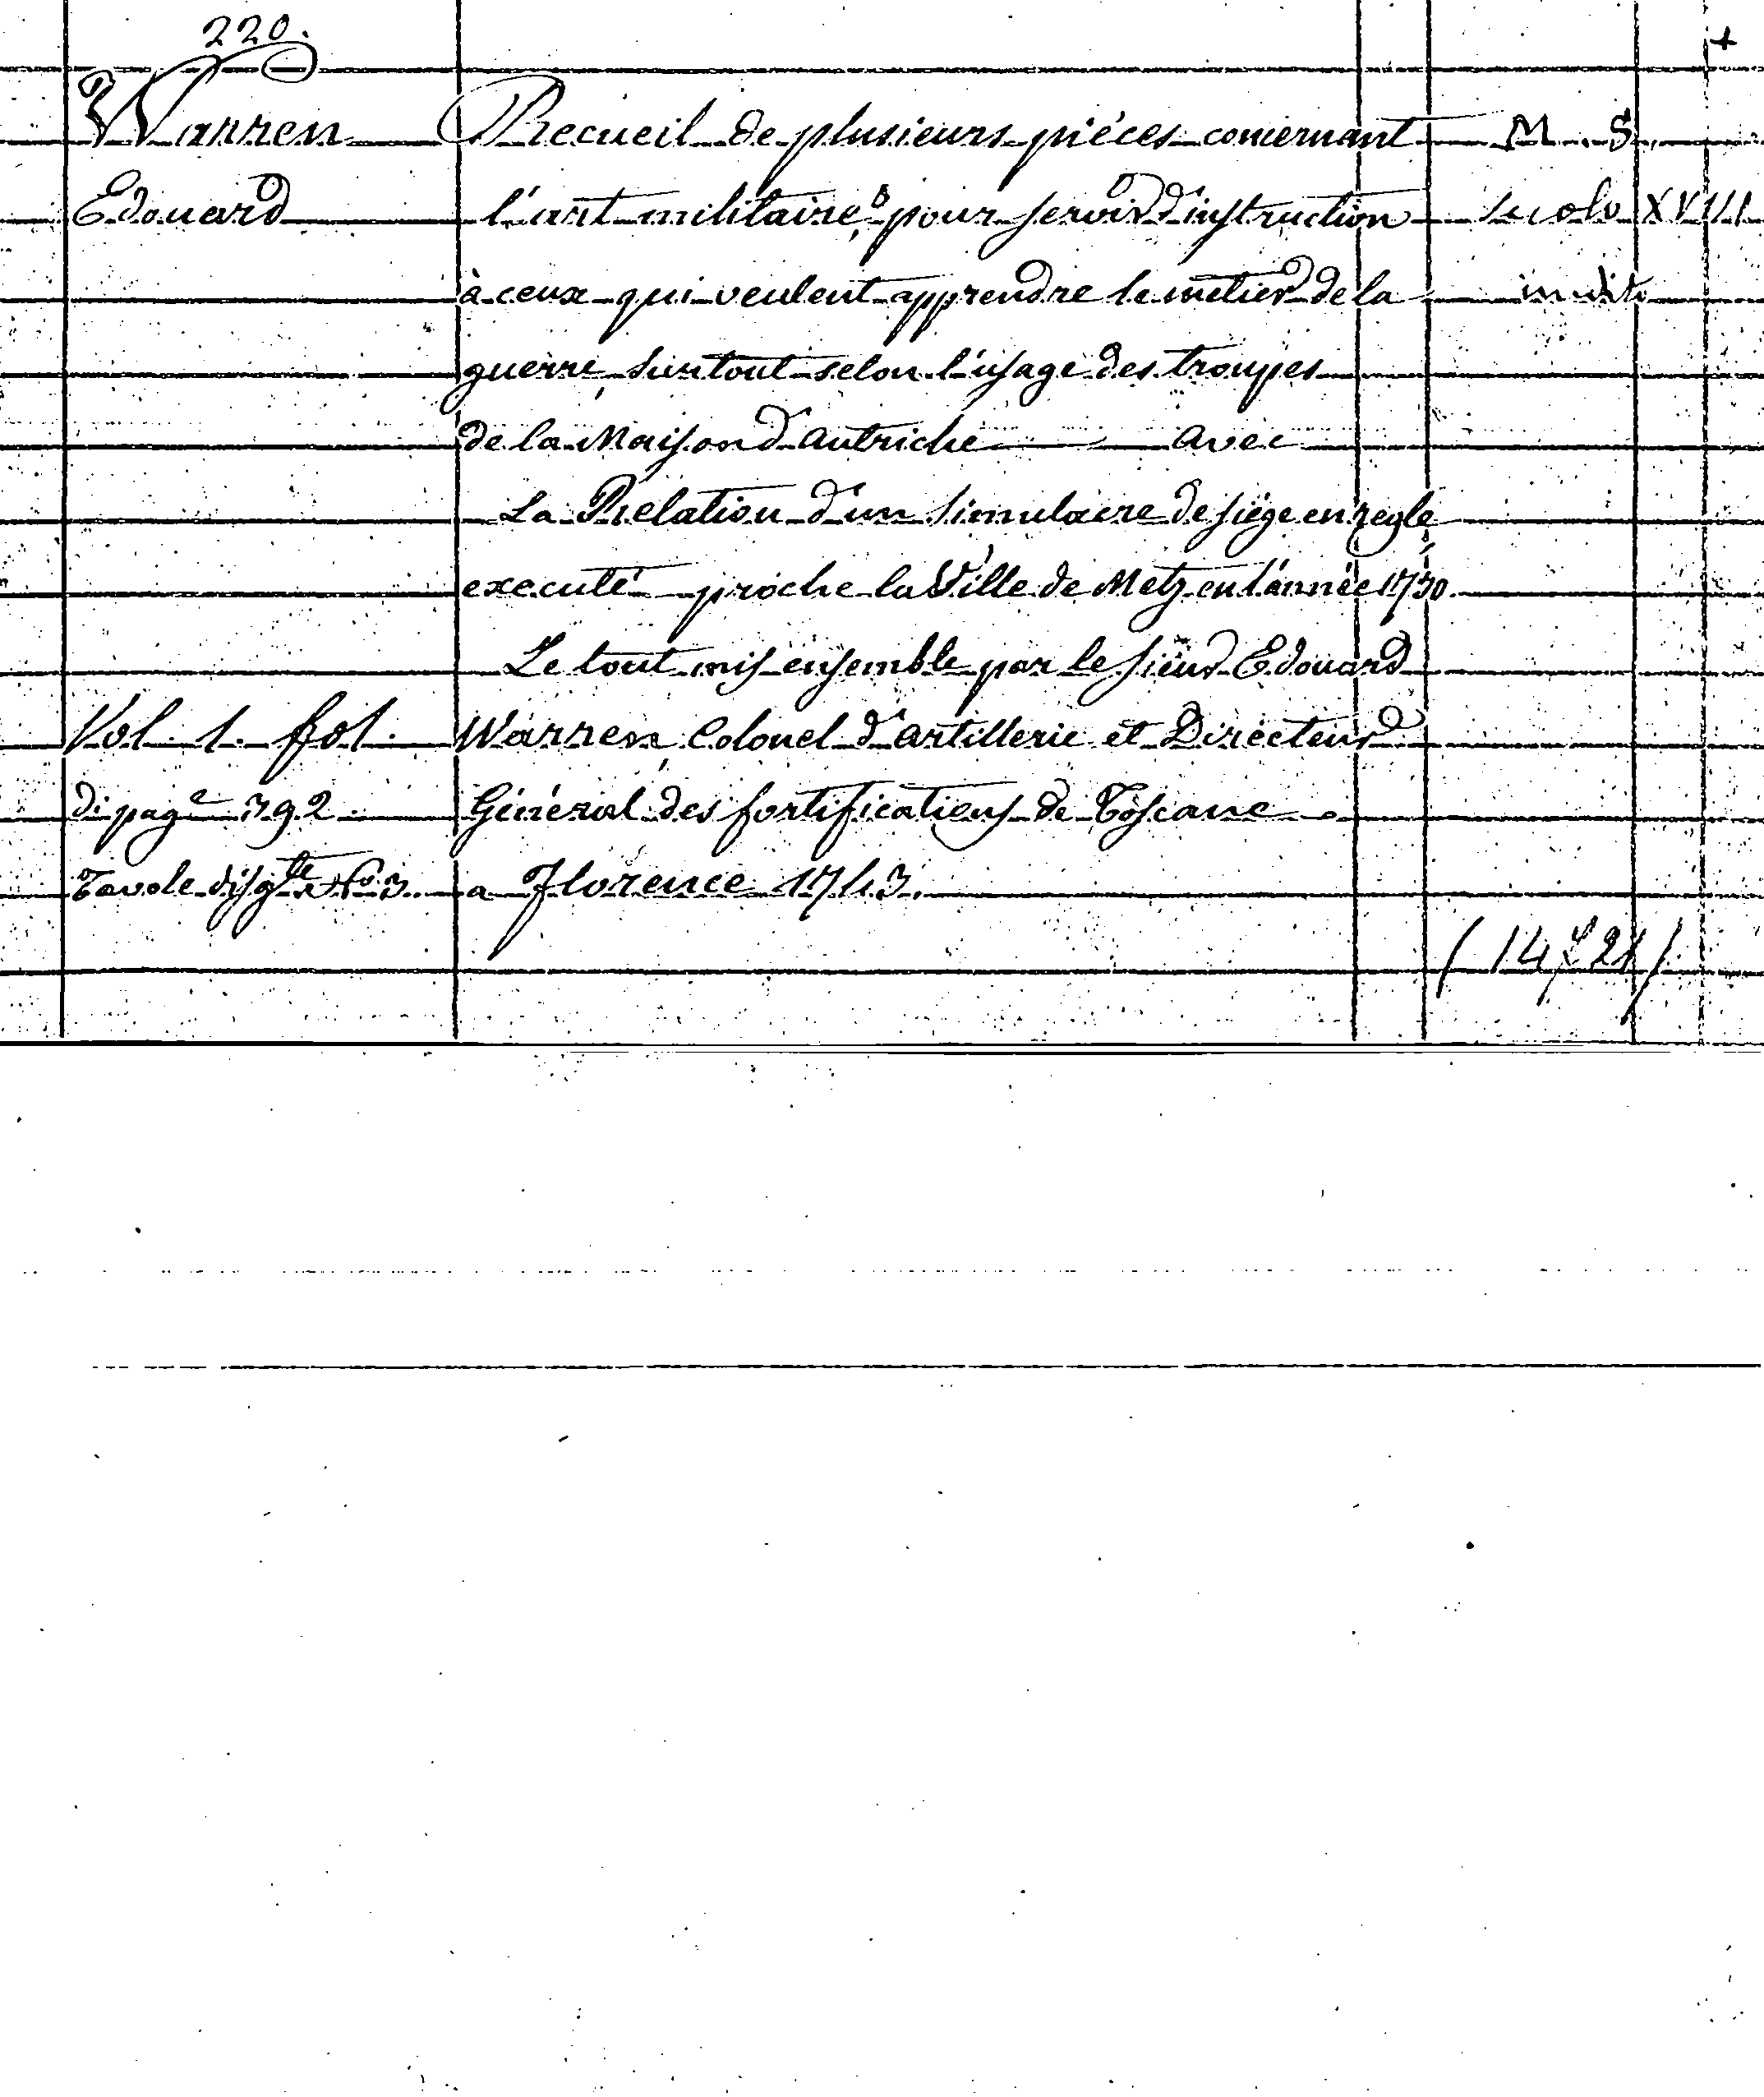 220.
Warren
Edouard
Recueil de plusieurs piéces concernant
l'art militaire, pour servir d'instruction
à ceux qui veulent apprendre le métier de la
guerre, surtout selon l'usage des troupes
de la Maison d'autriche avec
La Relation d'un simulacre de siége en regle,
executé proche la Ville de Metz en l'année 1730.
Le tout mis ensemble par le sieur Edouard
Warren, Colonel d'artillerie et Directeur
Général des fortifications de Toscane.
a Florence 1743.
Vol. 1. fol.
di pag.e 392
Tavole
M. S.
secolo XVIII
inedito